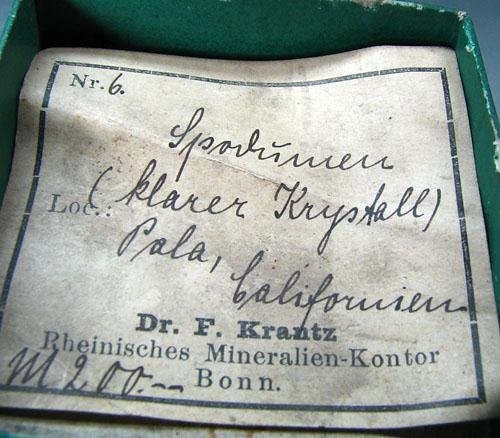 Nr. 6.
Spodumen
(klarer Krystall)
Loc.:
Pala,
Californien
Dr. F. Krantz
Rheinisches Mineralien-Kontor
Bonn.
M 200.—